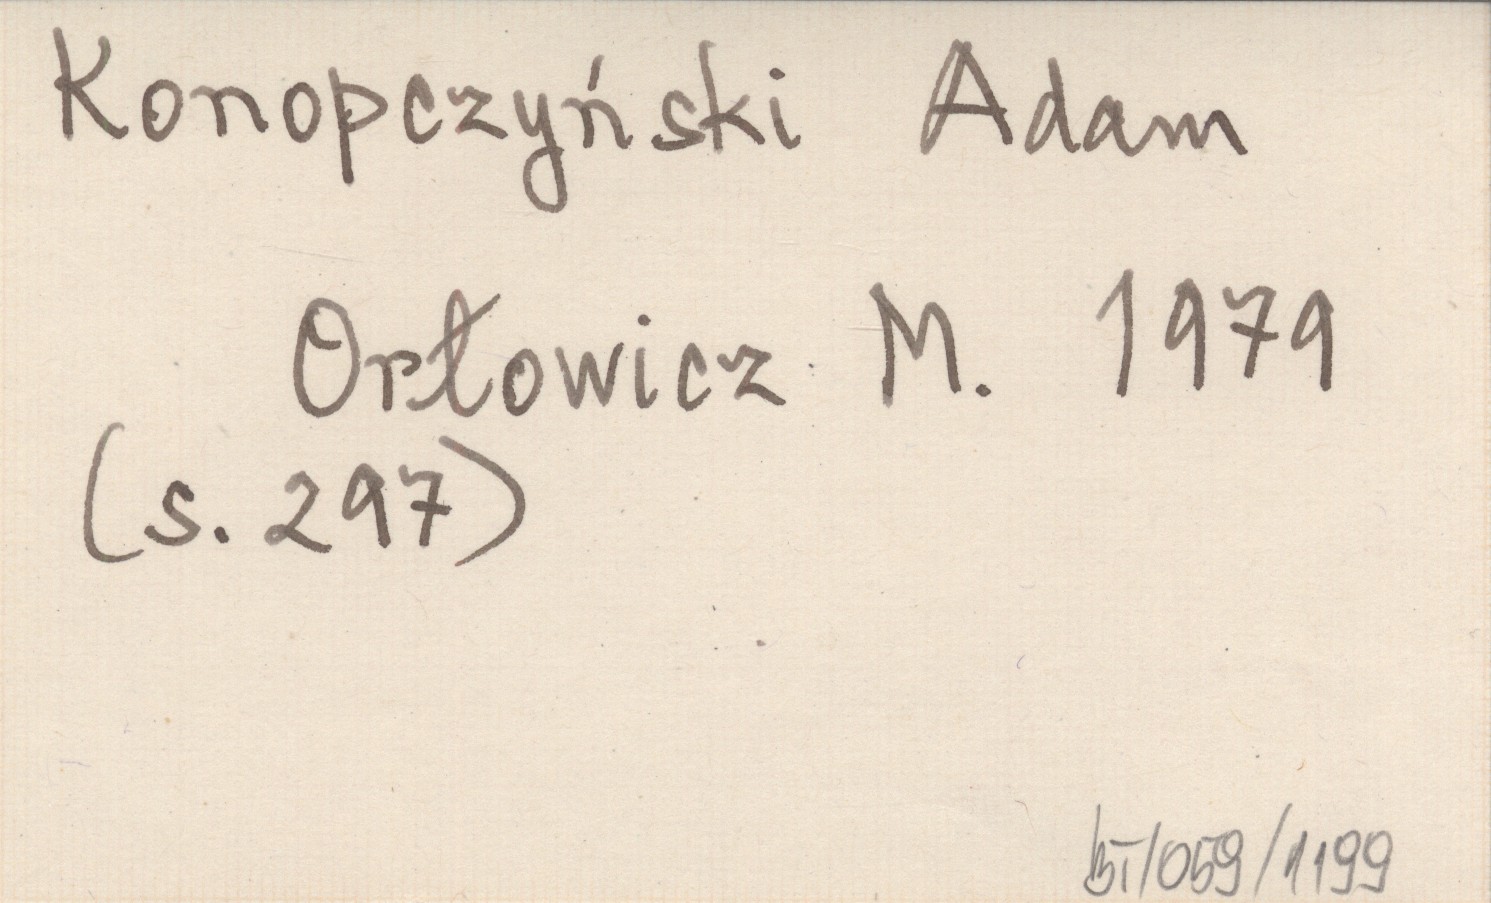 Konopczyński Adam
Orłowicz M. 1979
(s. 297)
BI/059/1199